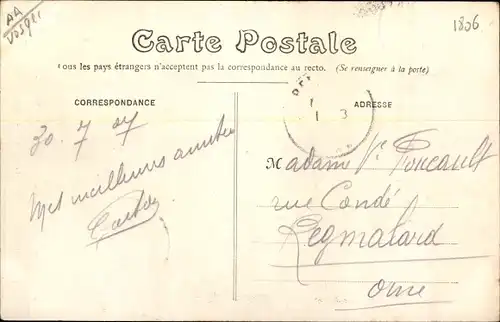 AA
Vosges
1806
Carte Postale
Tous les pays étrangers n'acceptent pas la correspondance au recto. (Se renseigner à la poste)
CORRESPONDANCE
ADRESSE
30. 7 07
Mes meilleures amitiés
Madame Ve Foucault
rue Condé
Regmalard
Orne